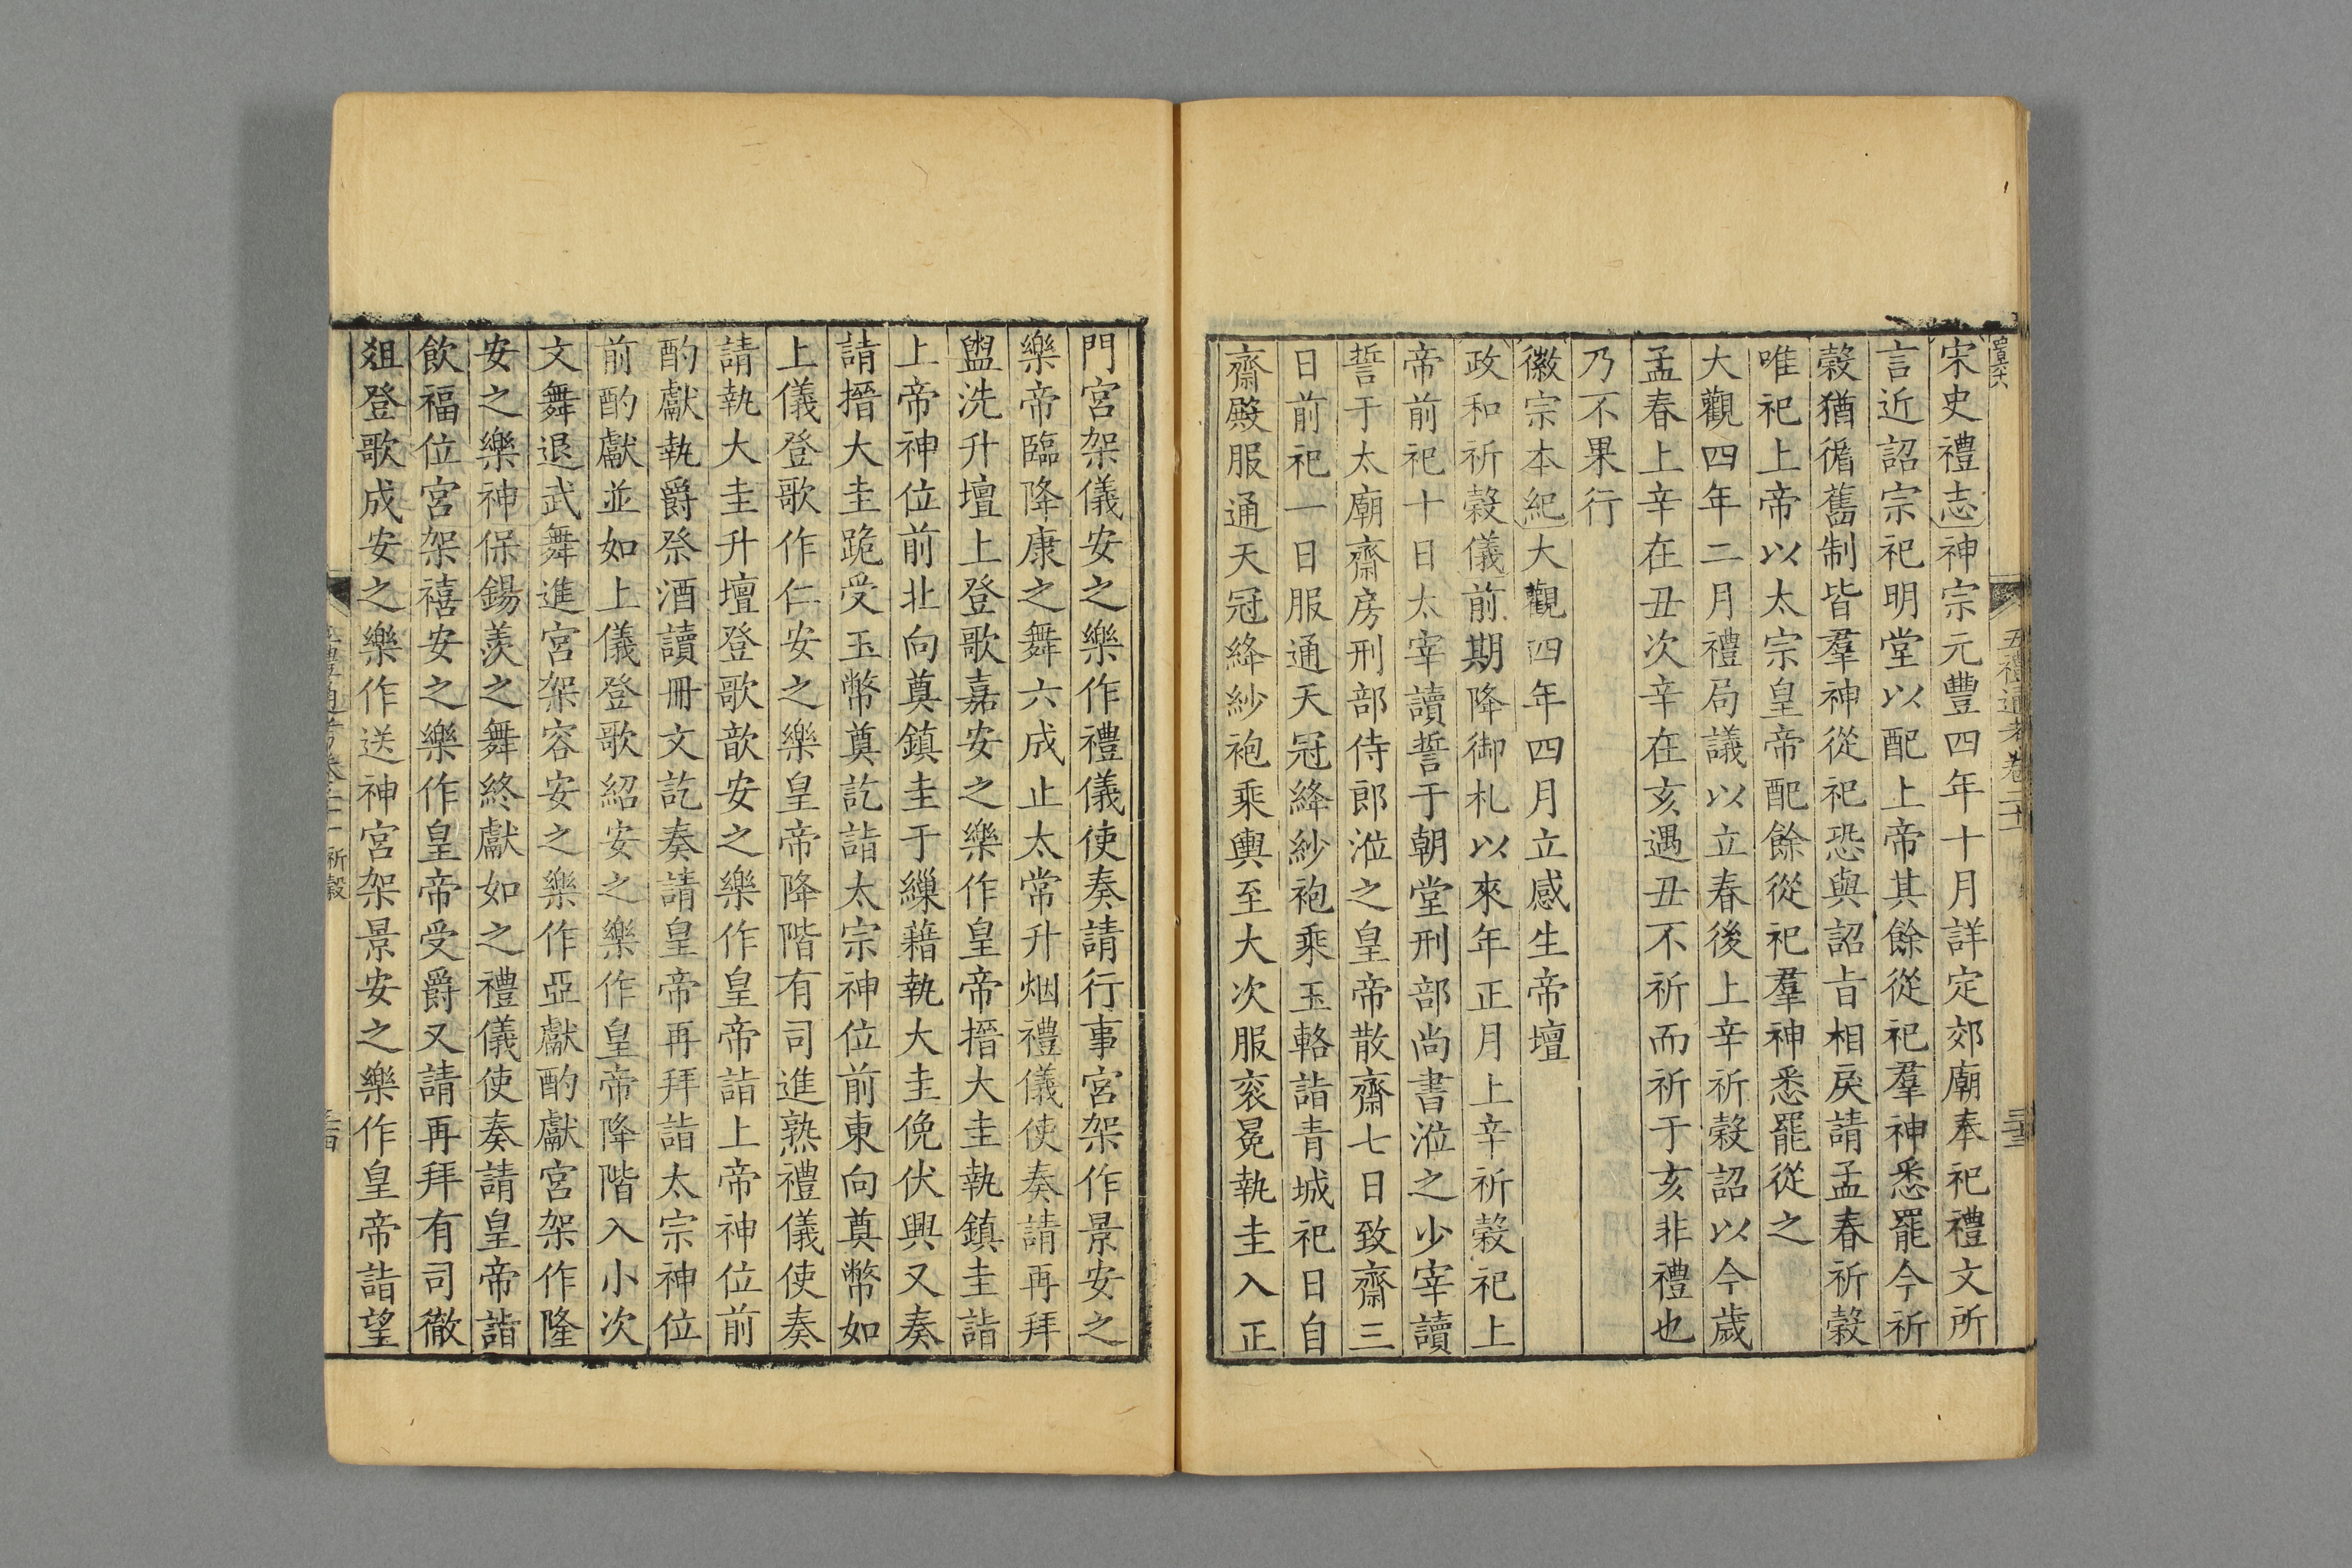 五禮通考卷二十一
宋史禮志神宗元豐四年十月詳定郊廟奉祀禮文所
言近詔宗祀明堂以配上帝其餘從祀羣神悉罷今祈
穀猶循舊制皆羣神從祀恐與詔旨相戾請孟春祈穀
唯祀上帝以太宗皇帝配餘從祀羣神悉罷從之
大觀四年二月禮局議以立春後上辛祈穀詔以今歲
孟春上辛在丑次辛在亥遇丑不祈而祈于亥非禮也
乃不果行
徽宗本紀大觀四年四月立感生帝壇
政和祈穀儀前期降御札以來年正月上辛祈穀祀上
帝前祀十日太宰讀誓于朝堂刑部尚書涖之少宰讀
誓于太廟齋房刑部侍郎涖之皇帝散齋七日致齋三
日前祀一日服通天冠絳紗袍乘玉輅詣青城祀日自
齋殿服通天冠絳紗袍乘輿至大次服衮冕執圭入正
門宮架儀安之樂作禮儀使奏請行事宮架作景安之
樂帝臨降康之舞六成止太常升烟禮儀使奏請再拜
盥洗升壇上登歌嘉安之樂作皇帝搢大圭執鎮圭詣
上帝神位前北向奠鎮圭于繅藉執大圭俛伏興又奏
請搢大圭跪受玉幣奠訖詣太宗神位前東向奠幣如
上儀登歌作仁安之樂皇帝降階有司進熟禮儀使奏
請執大圭升壇登歌歆安之樂作皇帝詣上帝神位前
酌獻執爵祭酒讀冊文訖奏請皇帝再拜詣太宗神位
前酌獻並如上儀登歌紹安之樂作皇帝降階入小次
文舞退武舞進宮架容安之樂作亞獻酌獻宮架作隆
安之樂神保錫羨之舞終獻如之禮儀使奏請皇帝詣
飲福位宮架禧安之樂作皇帝受爵又請再拜有司徹
俎登歌成安之樂作送神宮架景安之樂作皇帝詣望
祈穀